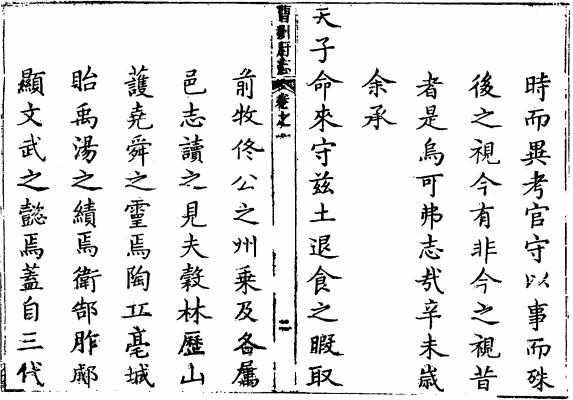 時而異考官守以事而殊
後之視今有非今之視昔
者是烏可弗志哉辛未歲
余承
天子命來守茲土退食之暇取
曹州府志
卷之一
二
前牧佟公之州乘及各屬
邑志讀之見夫穀林歷山
護堯舜之靈焉陶丘亳城
貽禹湯之績焉衛郜胙郕
顯文武之懿焉蓋自三代